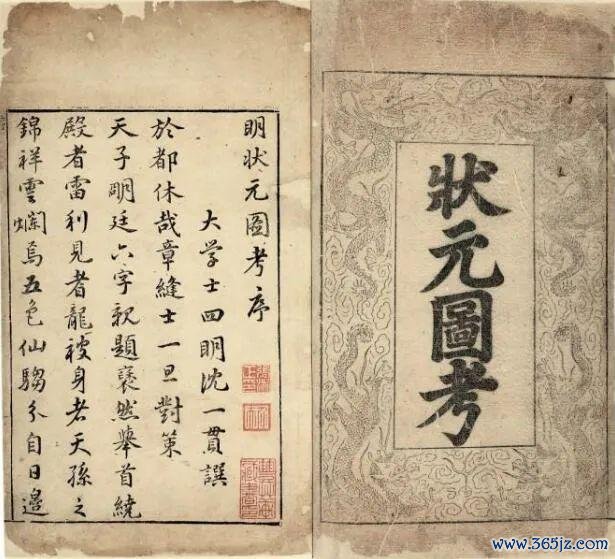 狀元圖考
明狀元圖考序
大学士四明沈一貫譔
於都休哉章縫士一旦對策
天子明廷六字親題褎然舉首繞
殿者雷利見者龍被身者天孫之
錦祥雲爛焉五色仙騶分自日邊
www.365jz.com